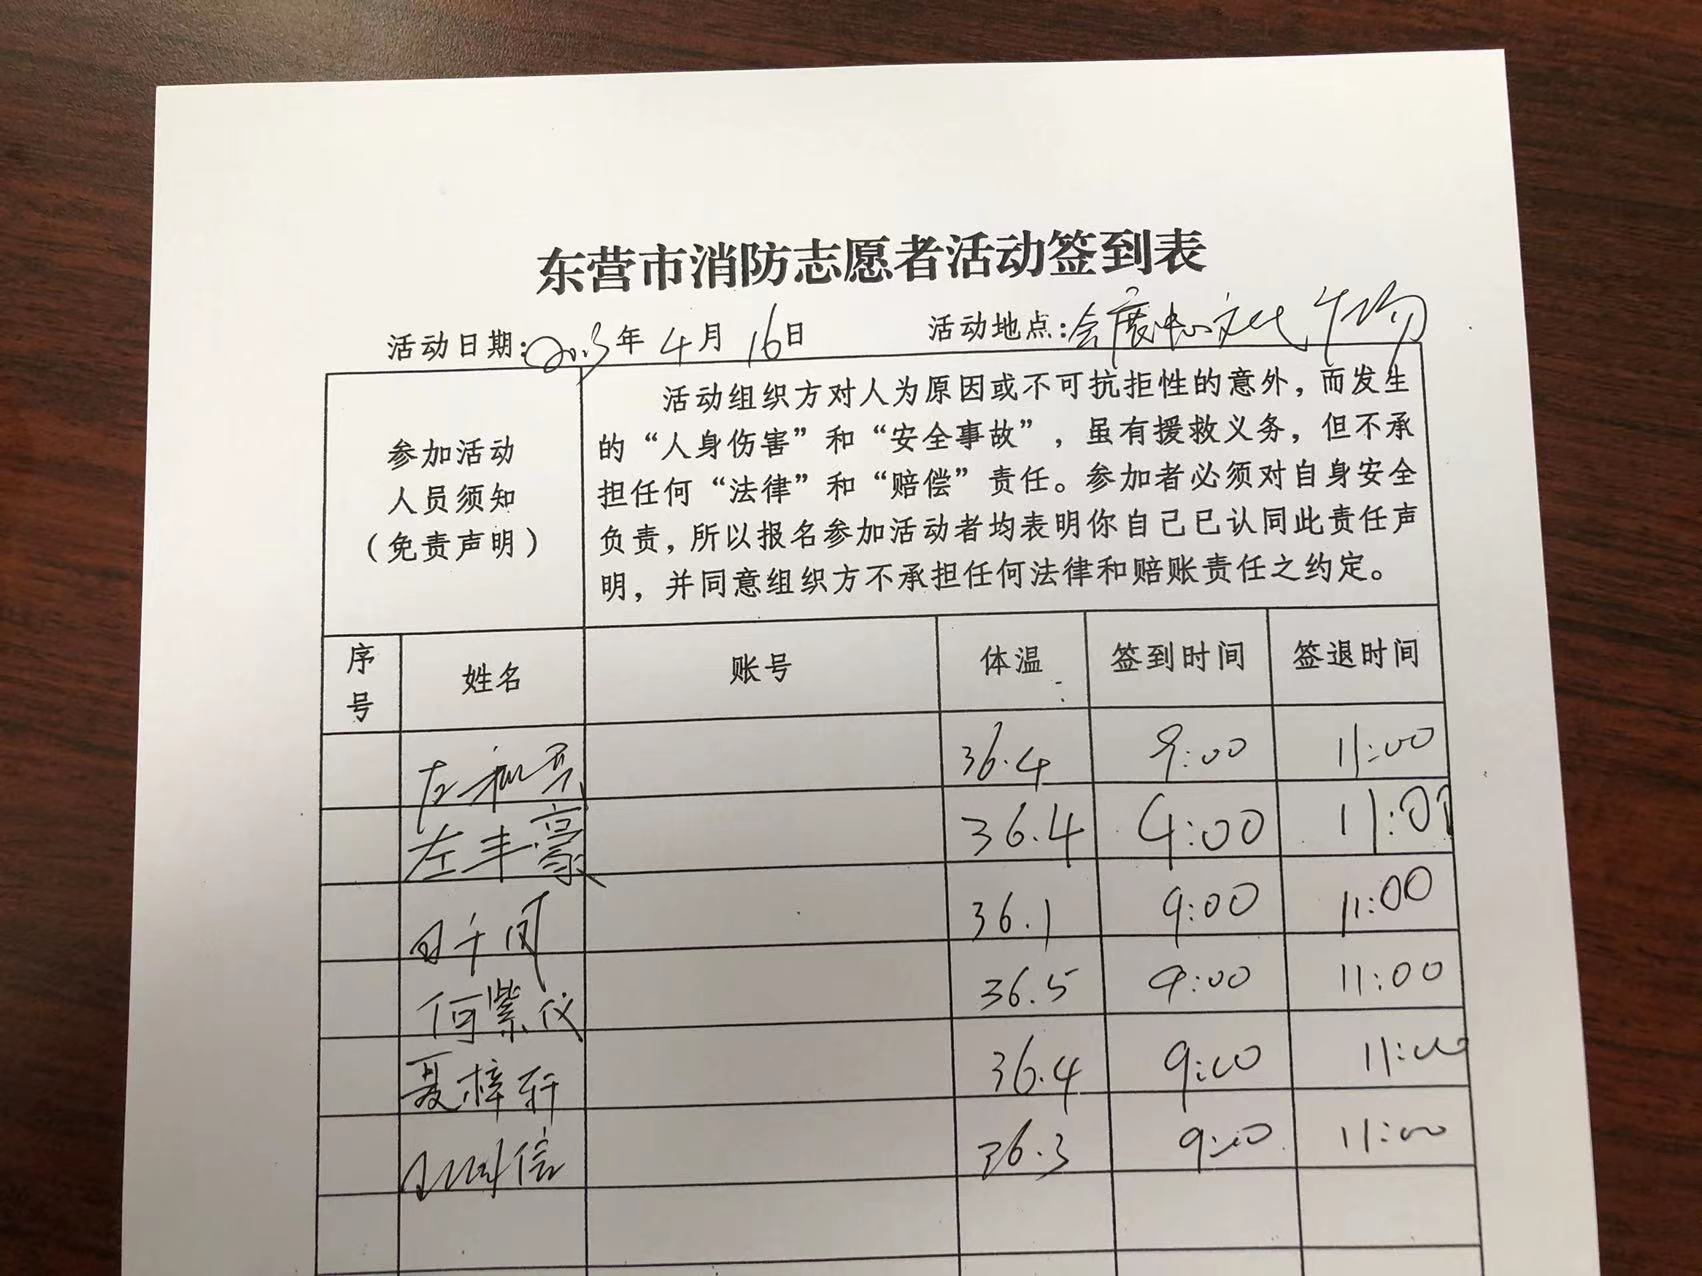 东营市消防志愿者活动签到表
活动日期:2023年4月16日 活动地点:会展中心文化广场
参加活动
人员须知
(免责声明)
活动组织方对人为原因或不可抗拒性的意外，而发生
的“人身伤害”和“安全事故”，虽有援救义务，但不承
担任何“法律”和“赔偿”责任。参加者必须对自身安全
负责，所以报名参加活动者均表明你自己已认同此责任声
明，并同意组织方不承担任何法律和赔账责任之约定。
序号 姓名 账号 体温 签到时间 签退时间
左 36.4 9:00 11:00
左丰豪 36.4 9:00 11:00
36.1 9:00 11:00
何紫仪 36.5 9:00 11:00
聂梓轩 36.4 9:00 11:00
信 36.3 9:00 11:00